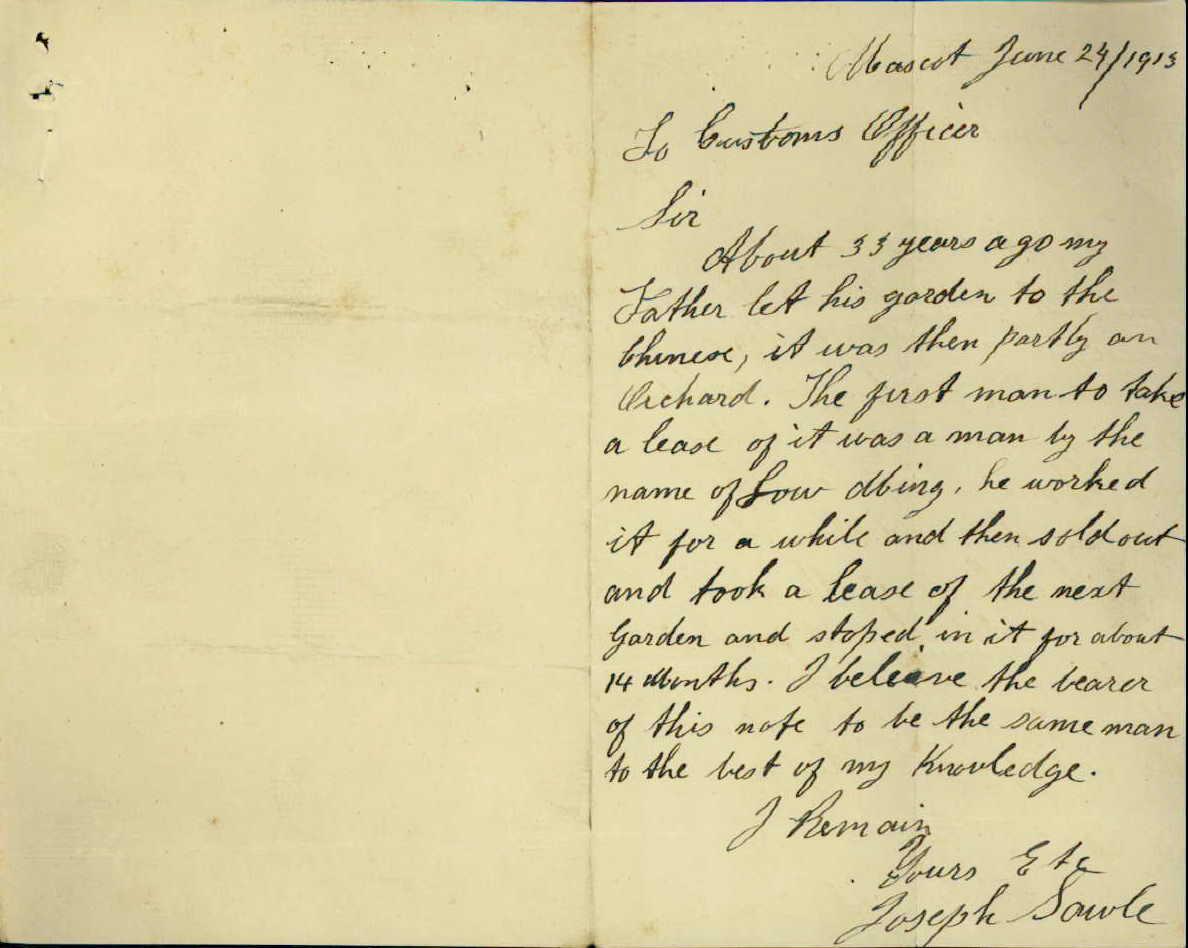 Mascot June 24/1913
To Customs Officer
Sir
About 33 years ago my
Father let his garden to the
Chinese, it was then partly an
Orchard. The first man to take
a lease of it was a man by the
name of Sow Ming, he worked
it for a while and then sold out
and took a lease of the next
Garden and stoped in it for about
14 Months. I beleive the bearer
of this note to be the same man
to the best of my Knowledge.
I Remain
Yours Etc
Joseph Sawle